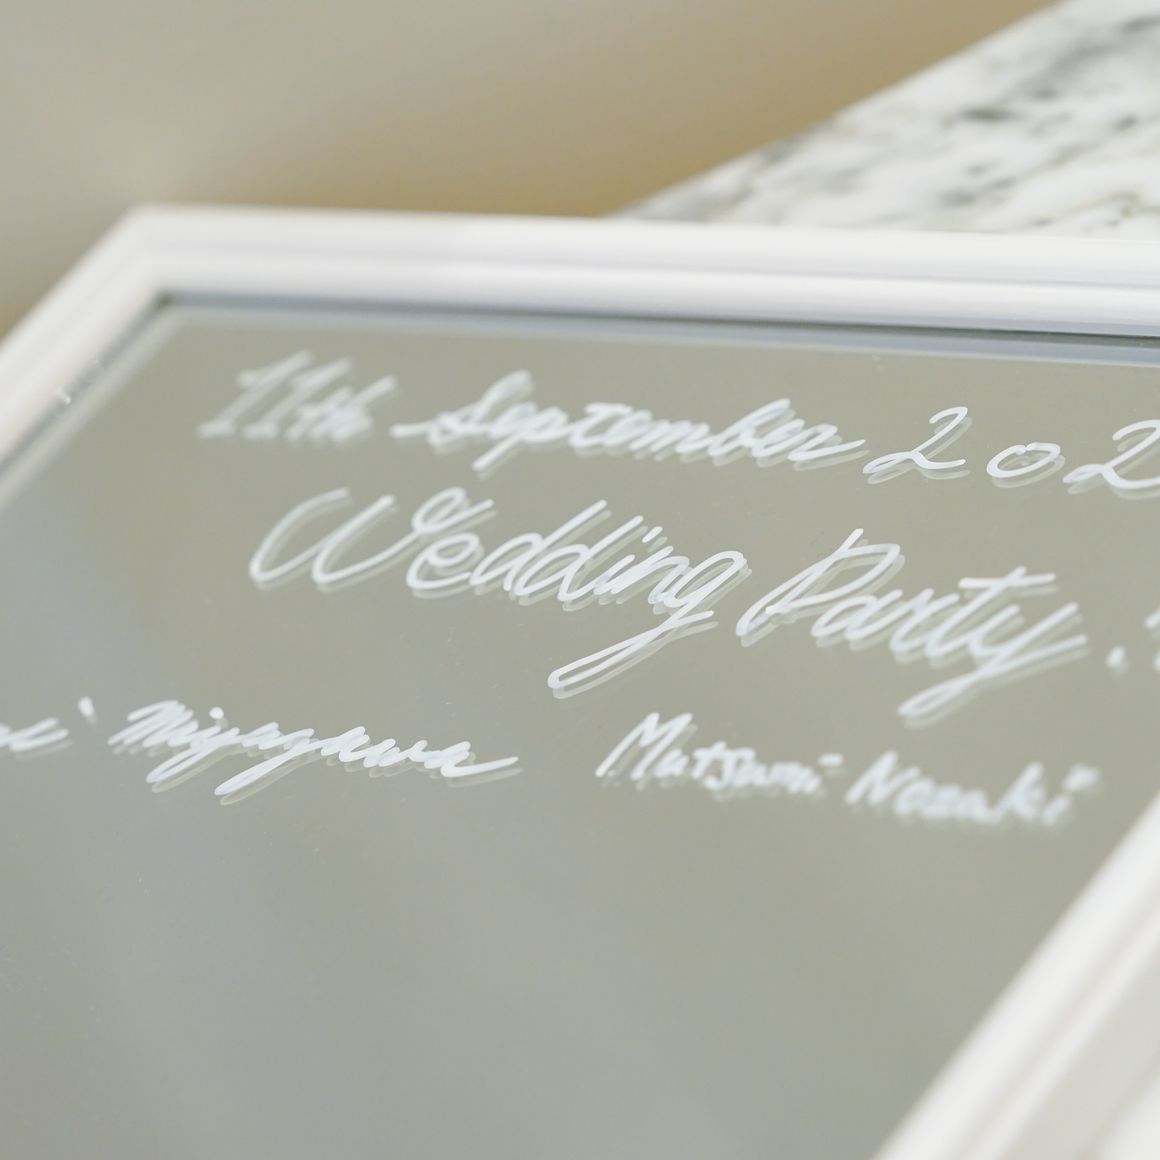 11th September 202
Wedding Party.
Miyagawa Mutsumi Nozaki